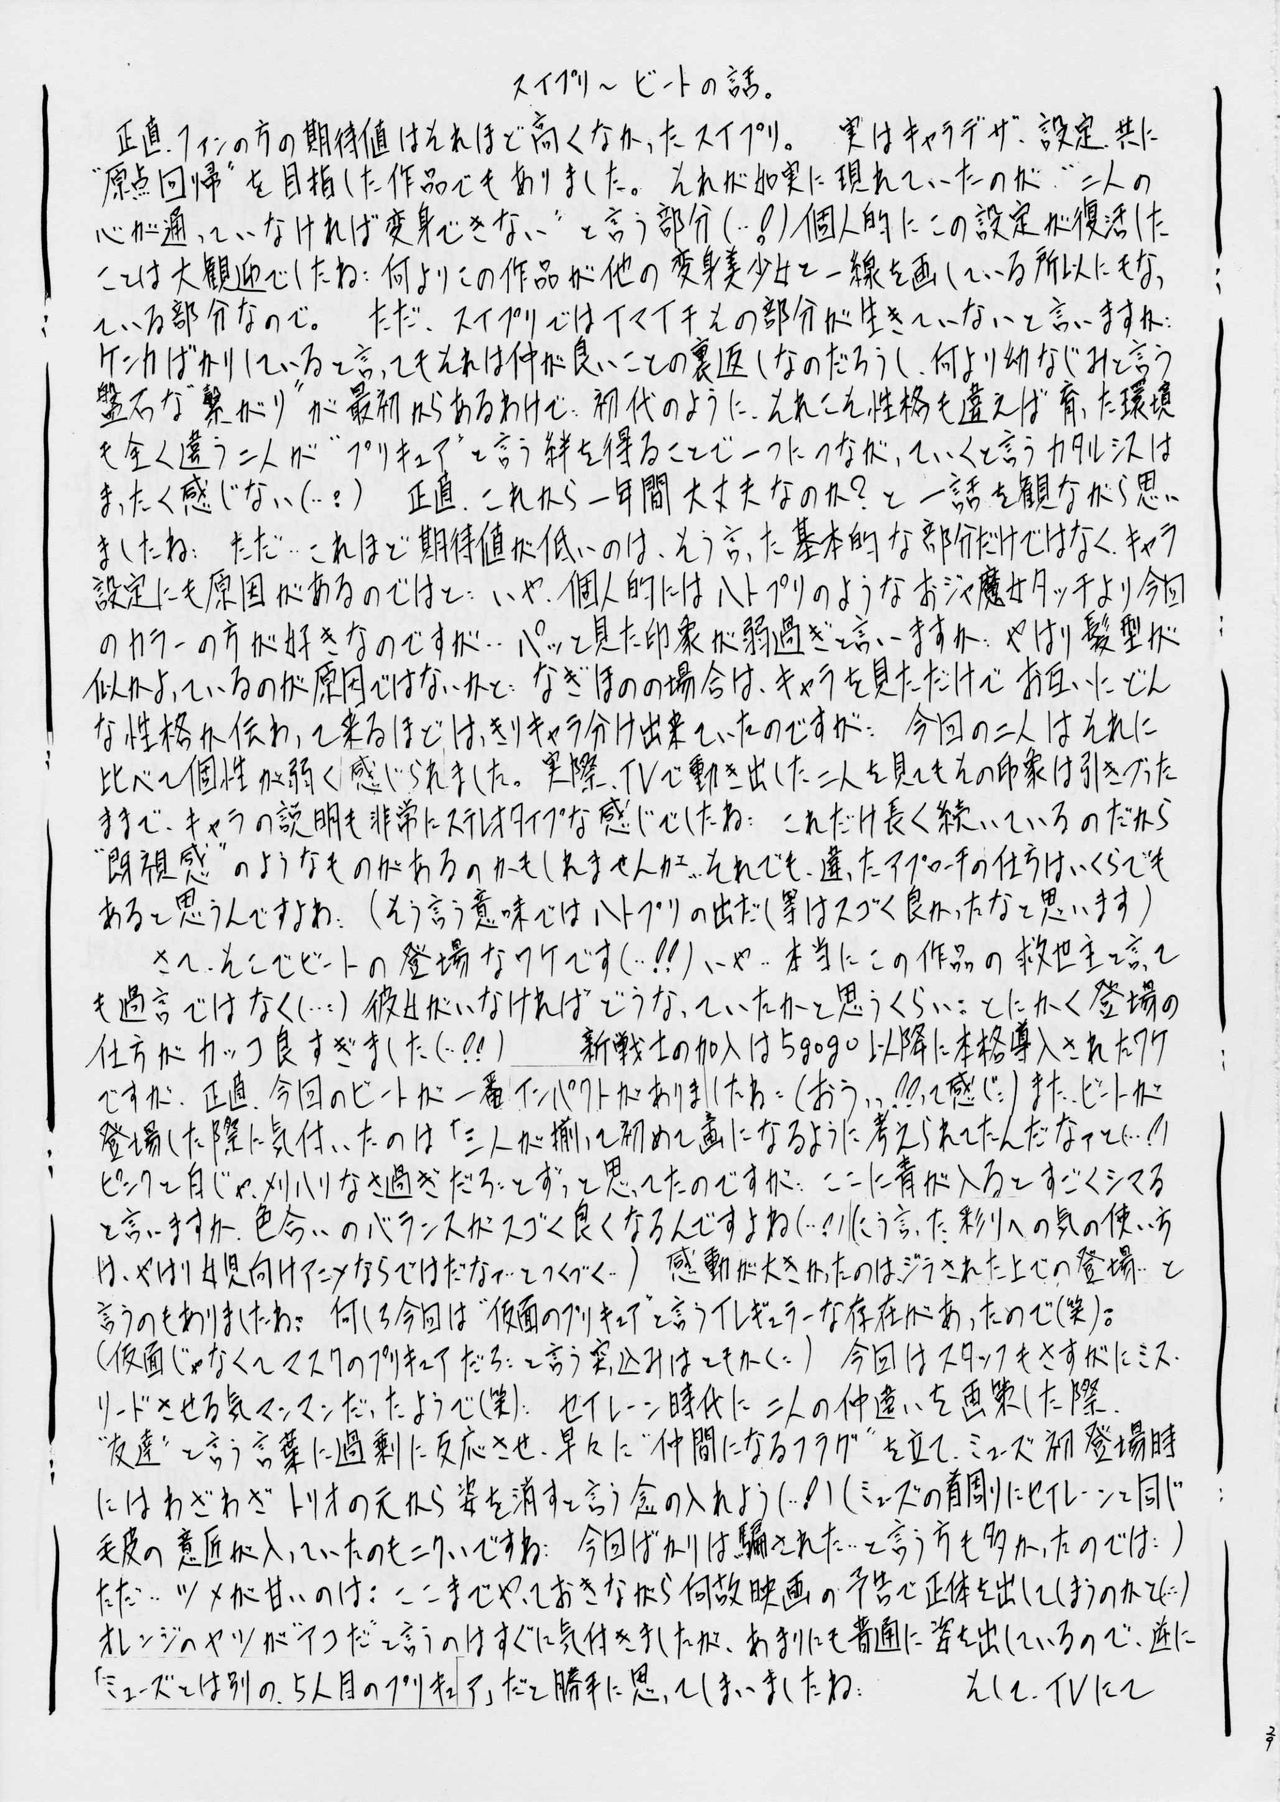 スイプリ～ビートの話。
正直、ファンの方の期待値はそれほど高くなかったスイプリ。 実はキャラデザ、設定共に
"原点回帰"を目指した作品でもありました。 それが如実に現れていたのが、"二人の
心が通っていなければ変身できない"と言う部分(…!)個人的にこの設定が復活した
ことは大観迎でしたね…何よりこの作品が他の変身美少女と一線を画している所以にもなっ
ている部分なので。 ただ、スイプリではイマイチその部分が生きていないと言いますか…
ケンカばかりしていると言ってもそれは仲が良いことの裏返しなのだろうし、何より幼なじみと言う
盤石な"繋がり"が最初からあるわけで… 初代のように、それこそ性格も違えば育った環境
も全く違う二人が"プリキュア"と言う絆を得ることで一つにつながっていくと言うカタルシスは
まったく感じない(…!) 正直、これから一年間大丈夫なのか?と一話を観ながら思い
ましたね… ただ…これほど期待値が低いのは、そう言った基本的な部分だけではなく、キャラ
設定にも原因があるのではと… いや、個人的にはハトプリのようなおジャ魔女タッチより今回
のカラーの方が好きなのですが… パッと見た印象が弱過ぎと言いますか… やはり髪型が
似かよっているのが原因ではないかと… なぎほのの場合は、キャラを見ただけでお互いにどん
な性格か伝わって来るほどはっきりキャラ分け出来ていたのですが… 今回の二人はそれに
比べて個性が弱く感じられました。実際、TVで動き出した二人を見てもその印象は引きづった
ままで、キャラの説明も非常にステレオタイプな感じでしたね… これだけ長く続いているのだから
"既視感"のようなものがあるのかもしれませんが…それでも、違ったアプローチの仕方はいくらでも
あると思うんですよね…(そう言う意味ではハトプリの出だし等はスゴく良かったなと思います)
さて、そこでビートの登場なワケです(…!!)いや…本当にこの作品の救世主と言って
も過言ではなく(…)彼女がいなければどうなっていたかと思うくらい…とにかく登場の
仕方がカッコ良すぎました(…!!) 新戦士の加入は5gogo以降に本格導入されたワケ
ですが、正直、今回のビートが一番インパクトがありましたね…(おうっ…!?って感じ…)また、ビートが
登場した際に気付いたのは「三人が揃って初めて画になるように考えられてたんだなァと(…!)
ピンクと白じゃ、メリハリなさ過ぎだろ…とずっと思ってたのですが… ここに青が入るとすごくシマる
と言いますか、色合いのバランスがスゴく良くなるんですよね(…!)(こう言った彩りへの気の使い方
は、やはり女児向けアニメならではだなァ…とつくづく…) 感動が大きかったのは、ジラされた上での登場…と
言うのもありましたね… 何しろ今回は"仮面のプリキュア"と言うイレギュラーな存在があったので(笑)…
(仮面じゃなくてマスクのプリキュアだろ…と言う突っ込みはともかく…) 今回はスタッフもさすがにミス・
リードさせる気マンマンだったようで(笑)… セイレーン時代に二人の仲違いを画策した際、
"友達"と言う言葉に過剰に反応させ、早々に"仲間になるフラグ"を立て、ミューズ初登場時
にはわざわざトリオの元から姿を消すと言う念の入れよう(…!)(ミューズの首周りにセイレーンと同じ
毛皮の意匠が入っていたのもニクいですね… 今回ばかりは騙された…と言う方も多かったのでは…)
ただ…ツメが甘いのは… ここまでやっておきながら何故映画の予告で正体を出してしまうのかと(…)
オレンジのヤツが"アコ"だと言うのはすぐに気付きましたが、あまりにも普通に姿を出しているので、逆に
「ミューズとは別の、5人目のプリキュア」だと勝手に思ってしまいましたね… そして、TVにて
29